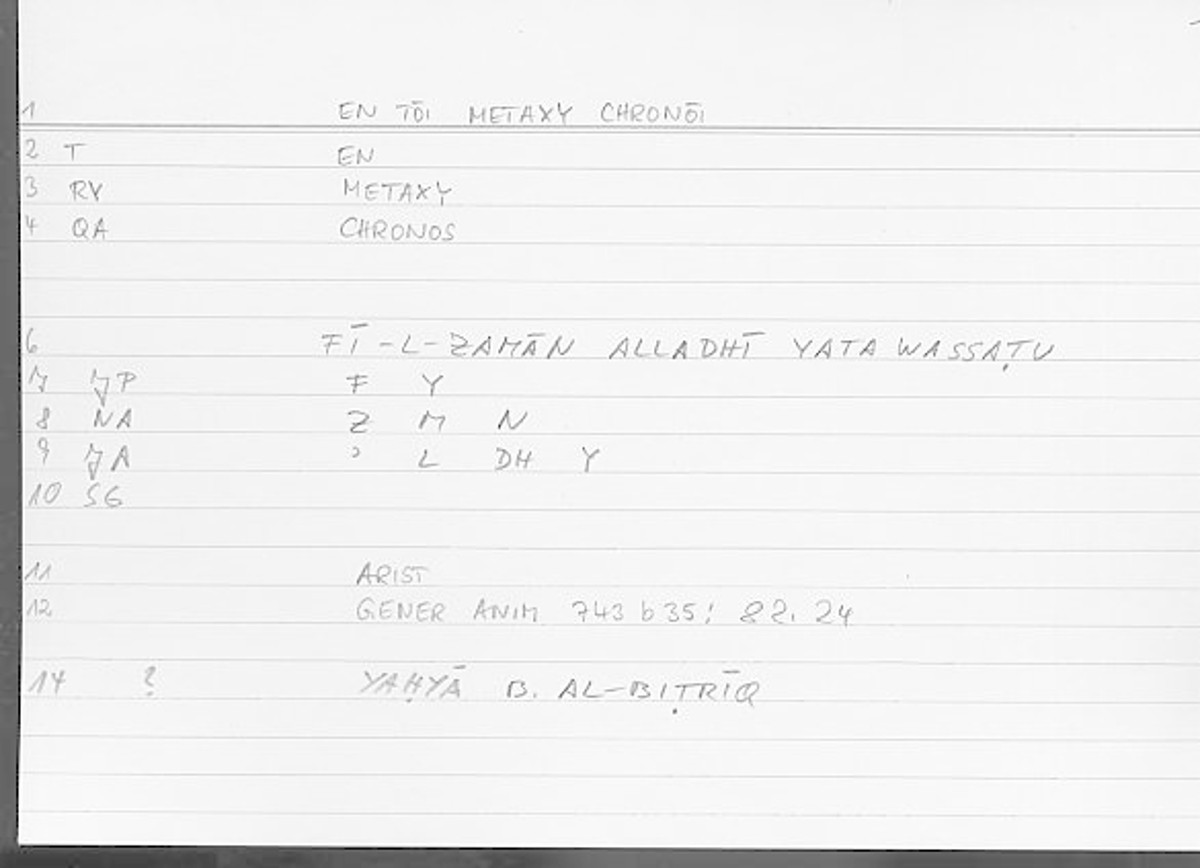 1 EN TŌI METAXY CHRONŌI
2 T EN
3 RY METAXY
4 QA CHRONOS
6 FĪ-L-ZAMĀN ALLADHĪ YATAWASSAṬU
7 JP F Y
8 NA Z M N
9 JA ʾ L DH Y
10 SG
11 ARIST
12 GENER ANIM 743 b 35; 82. 24
14 ? YAḤYĀ B. AL-BIṬRĪQ